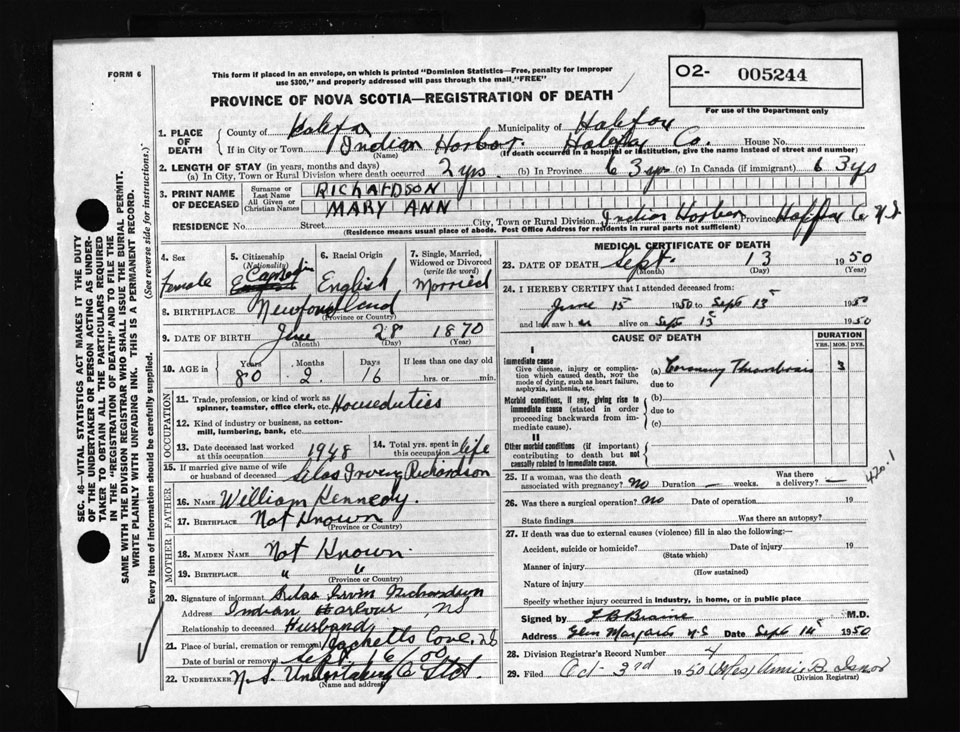 FORM 6
This form if placed in an envelope, on which is printed "Dominion Statistics—Free, penalty for improper
use $300," and properly addressed will pass through the mail "FREE"
O2- 005244
For use of the Department only
PROVINCE OF NOVA SCOTIA—REGISTRATION OF DEATH
1. PLACE OF DEATH
County of Halifax Municipality of Halifax
If in City or Town Indian Harbor Halifax Co. House No.
(Name) (If death occurred in a hospital or institution, give the name instead of street and number)
2. LENGTH OF STAY (in years, months and days)
(a) In City, Town or Rural Division where death occurred 2 yrs. (b) In Province 63 yrs (c) In Canada (if immigrant) 63 yrs
3. PRINT NAME OF DECEASED
Surname or Last Name RICHARDSON
All Given or Christian Names MARY ANN
RESIDENCE No. Street City, Town or Rural Division Indian Harbor Province Halifax Co N.S
(Residence means usual place of abode. Post Office Address for residents in rural parts not sufficient)
4. Sex Female
5. Citizenship (Nationality) Canadian
6. Racial Origin English
7. Single, Married, Widowed or Divorced (write the word) Married
8. BIRTHPLACE Newfoundland
(Province or Country)
9. DATE OF BIRTH June 28 1870
(Month) (Day) (Year)
10. AGE in Years Months Days If less than one day old
80 2 16 hrs. or min.
OCCUPATION
11. Trade, profession, or kind of work as spinner, teamster, office clerk, etc. Houseduties
12. Kind of industry or business, as cotton-mill, lumbering, bank, etc.
13. Date deceased last worked at this occupation 1948
14. Total yrs. spent in this occupation life
15. If married give name of wife or husband of deceased Silas Irven Richardson
FATHER
16. NAME William Kennedy.
17. BIRTHPLACE Not Known
(Province or Country)
MOTHER
18. MAIDEN NAME Not Known.
19. BIRTHPLACE " "
(Province or Country)
20. Signature of informant Silas Irvin Richardson
Address Indian Harbour NS
Relationship to deceased Husband
21. Place of burial, cremation or removal Hacketts Cove, N.S
Date of burial or removal Sept 16/50
22. UNDERTAKER N.S. Undertaking Co Ltd.
(Name and address)
MEDICAL CERTIFICATE OF DEATH
23. DATE OF DEATH Sept. 13 1950
(Month) (Day) (Year)
24. I HEREBY CERTIFY that I attended deceased from:
June 15 1950 to Sept 13 1950
and last saw her alive on Sept 13 1950
CAUSE OF DEATH DURATION
YRS. MOS. DYS.
I
Immediate cause
Give disease, injury or complication which caused death, NOT the mode of dying, such as heart failure, asphyxia, asthenia, etc.
(a) Coronary Thrombosis 3
due to
Morbid conditions, if any, giving rise to immediate cause (stated in order proceeding backwards from immediate cause).
(b)
due to
(c)
II
Other morbid conditions (if important) contributing to death but not causally related to immediate cause.
420.1
25. If a woman, was the death associated with pregnancy? No Duration — weeks. Was there a delivery? —
26. Was there a surgical operation? No Date of operation 19
State findings Was there an autopsy?
27. If death was due to external causes (violence) fill in also the following:—
Accident, suicide or homicide? Date of injury 19
(State which)
Manner of injury
(How sustained)
Nature of injury
Specify whether injury occurred in industry, in home, or in public place
Signed by M.D.
Address Glen Margaret N.S Date Sept 14 1950
28. Division Registrar's Record Number 4
29. Filed Oct- 3rd 1950 (Mrs) Annie B. Isnor
(Division Registrar)
SEC. 46—VITAL STATISTICS ACT MAKES IT THE DUTY
OF THE UNDERTAKER OR PERSON ACTING AS UNDER-
TAKER TO OBTAIN ALL THE PARTICULARS REQUIRED
IN THE "REGISTRATION OF DEATH" AND TO FILE THE
SAME WITH THE DIVISION REGISTRAR WHO SHALL ISSUE THE BURIAL PERMIT.
WRITE PLAINLY WITH UNFADING INK. THIS IS A PERMANENT RECORD.
Every item of information should be carefully supplied. (See reverse side for instructions.)